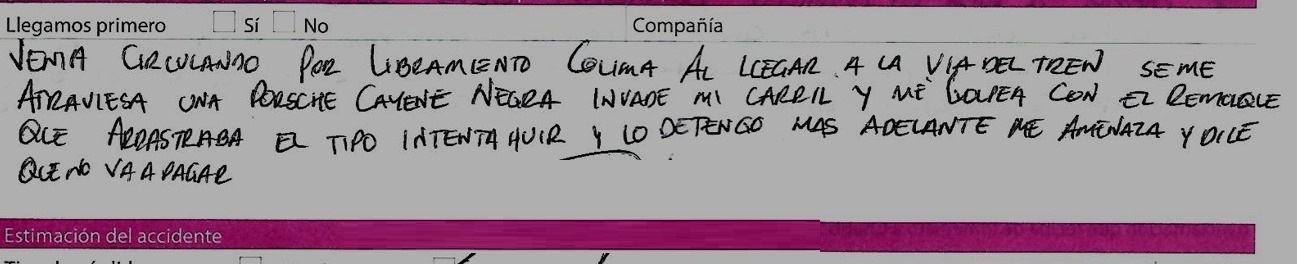 Llegamos primero Sí No Compañía
VENIA CIRCULANDO POR LIBRAMIENTO COLIMA AL LLEGAR A LA VIA DEL TREN SE ME
ATRAVIESA UNA PORSCHE CAYENE NEGRA INVADE MI CARRIL Y ME GOLPEA CON EL REMOLQUE
QUE ARRASTRABA EL TIPO INTENTA HUIR Y LO DETENGO MAS ADELANTE ME AMENAZA Y DICE
QUE NO VA A PAGAR
Estimación del accidente